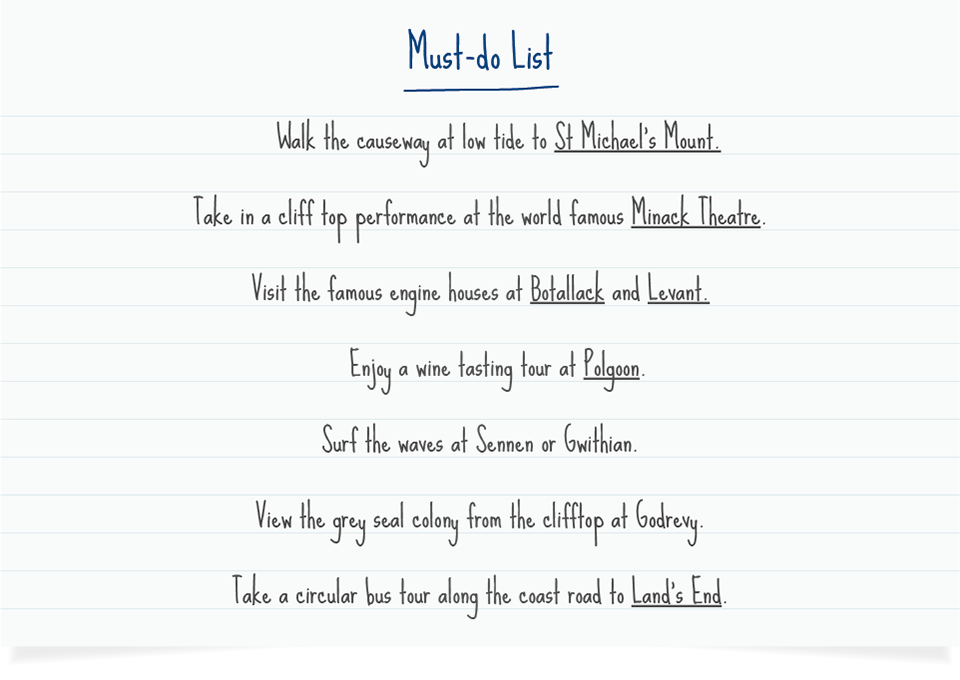 Must-do List
Walk the causeway at low tide to St Michael's Mount.
Take in a cliff top performance at the world famous Minack Theatre.
Visit the famous engine houses at Botallack and Levant.
Enjoy a wine tasting tour at Polgoon.
Surf the waves at Sennen or Gwithian.
View the grey seal colony from the clifftop at Godrevy.
Take a circular bus tour along the coast road to Land's End.